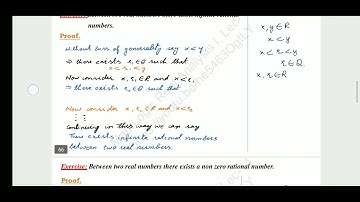 numbers.
Proof.
without loss of generality say x<y.
⇒ there exists r₁ ∈ Q such that
x<r₁<y
Now consider x, r₁ ∈ R and x<r₁
⇒ there exists r₂ ∈ Q such that
Now consider x, r₂ ∈ R and x<r₂
Continuing in this way we can say
There exists infinite rational numbers
between two real numbers.
66
Exercise: Between two real numbers there exists a non zero rational number.
Proof.
x, y ∈ R
x<y
x<r₁<y
r₁ ∈ Q
x, r₁ ∈ R